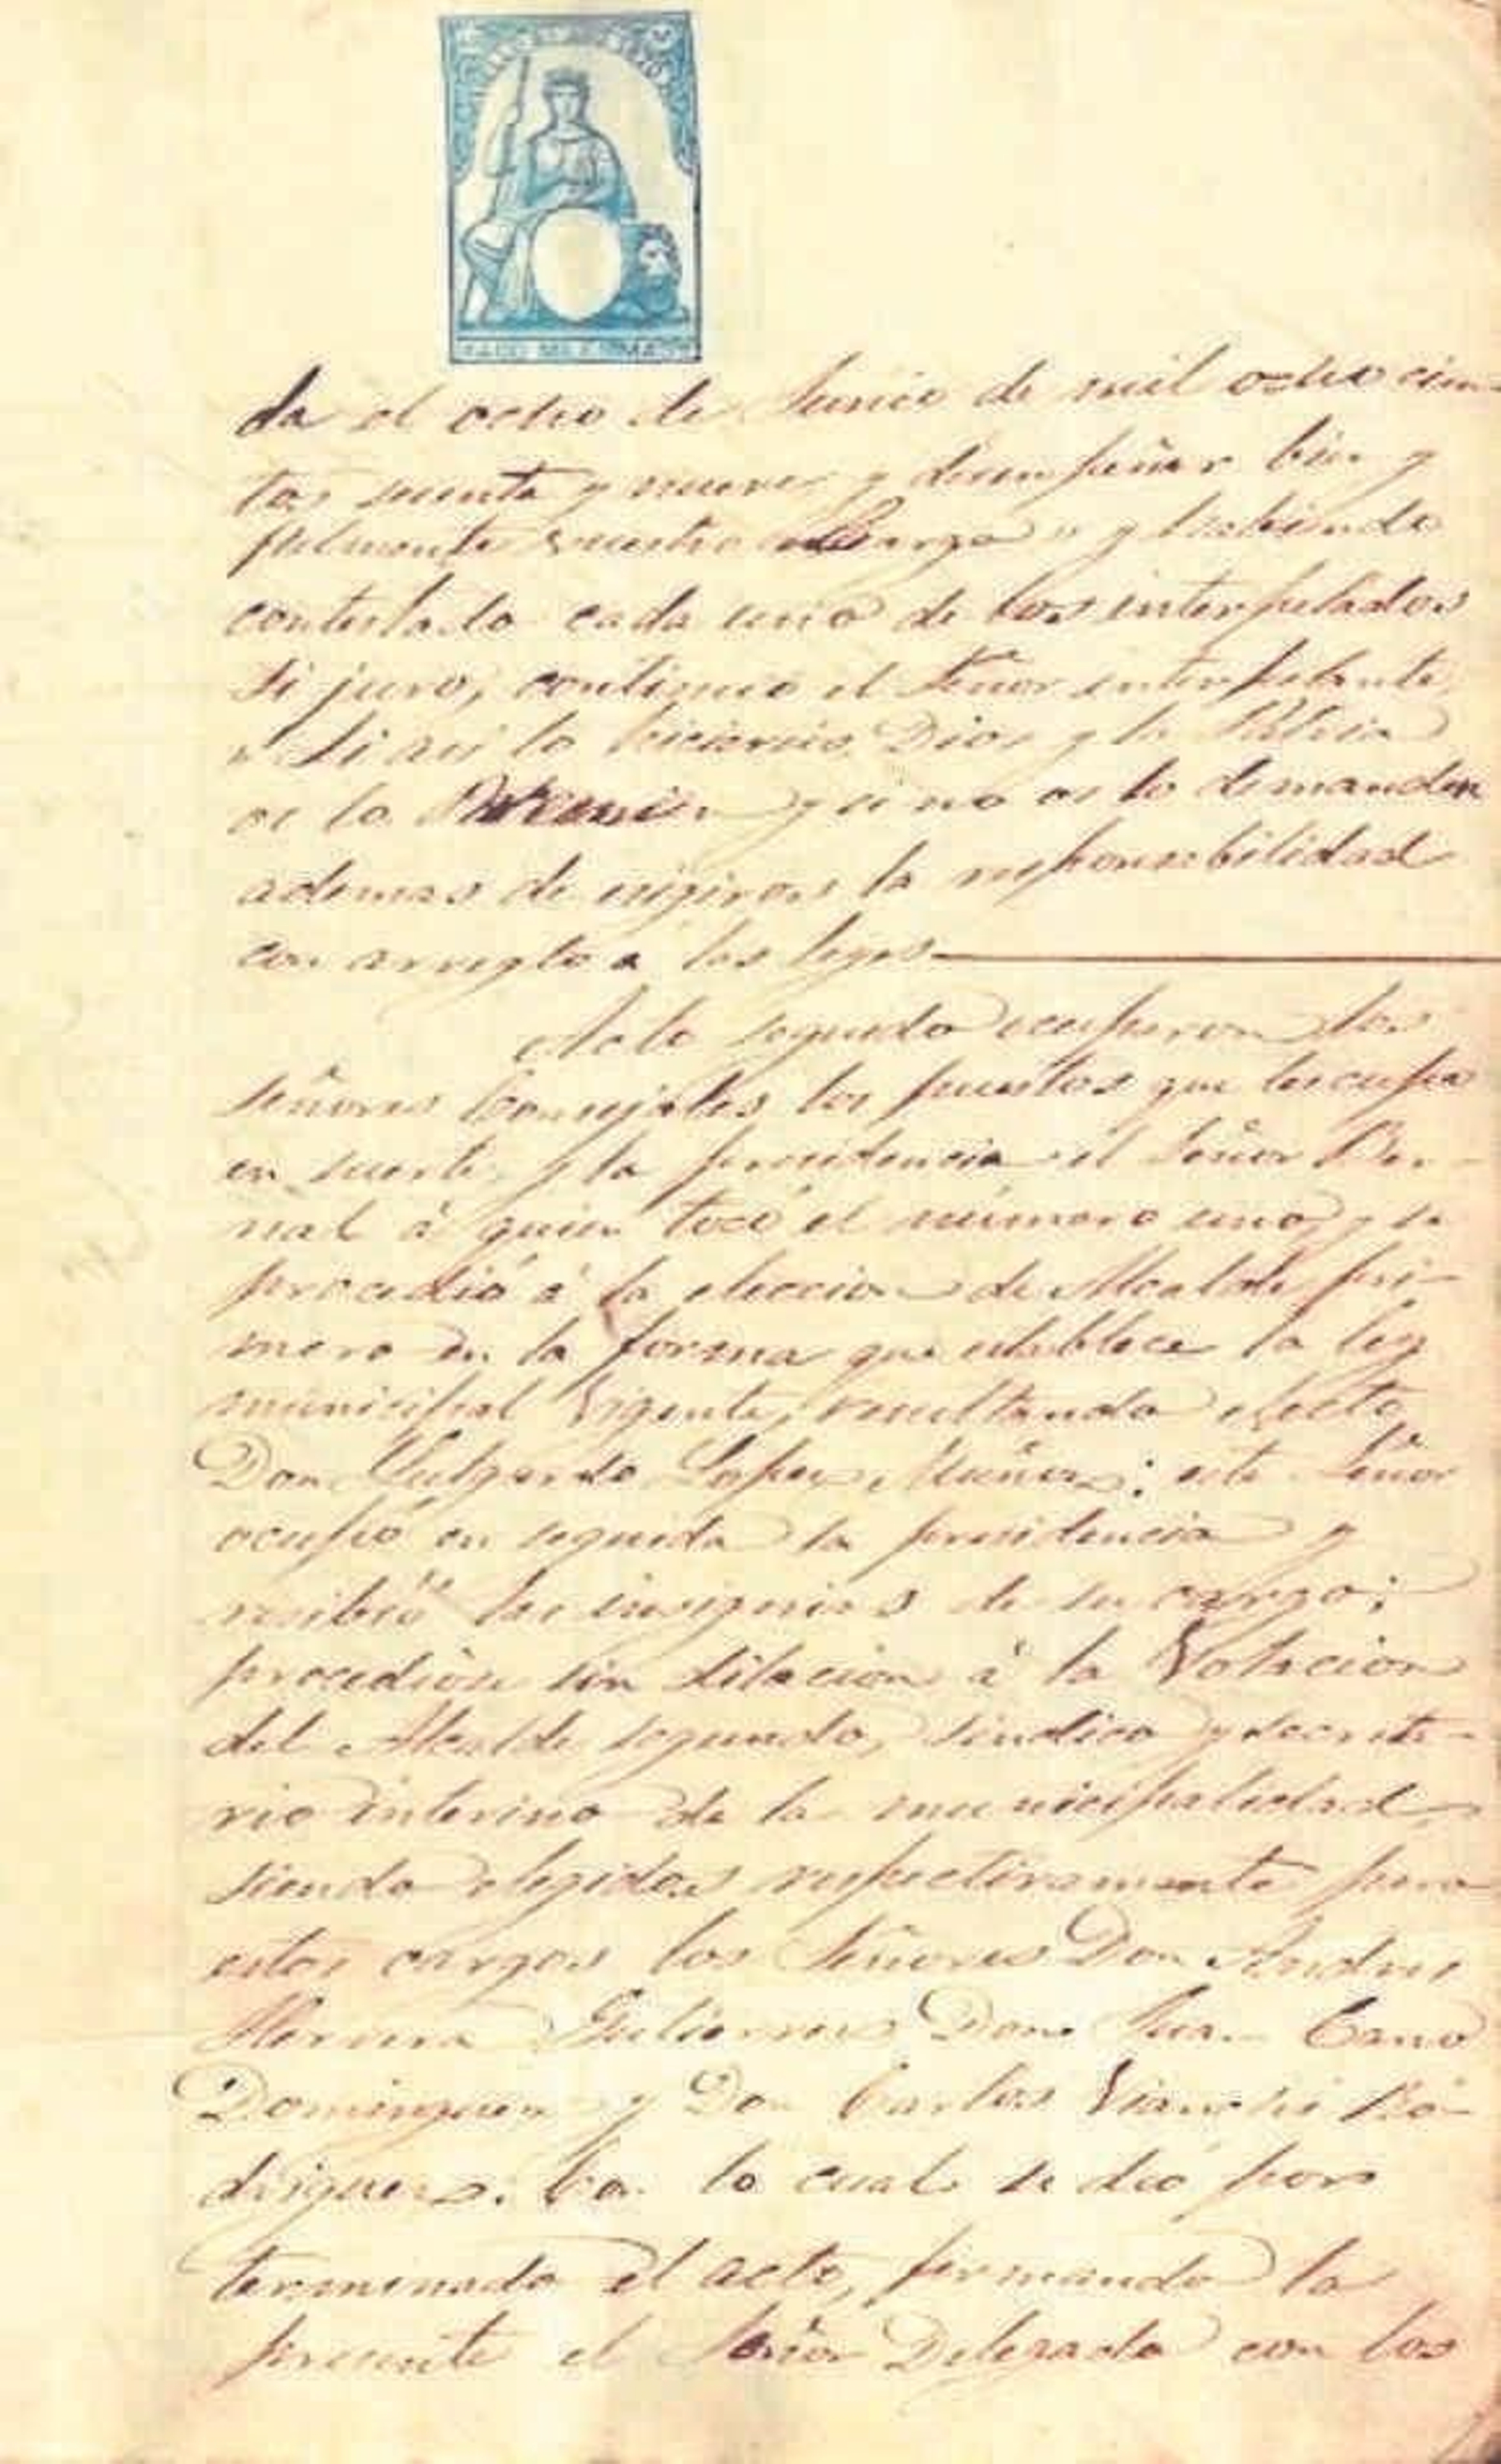 da el ocho de Junio de mil ochocien-
tos sesenta y nueve y desempeñar bien y
fielmente vuestro cargo" y habiendo
contestado cada uno de los interpelados
si juro, continuó el Señor interpelante
"Si asi lo hiciereis Dios y la Patria
os lo premien y si no os lo demanden
ademas de exigiros la responsabilidad
con arreglo a las leyes
Acto seguido ocuparon los
señores Concejales los puestos que les cupo
en suerte y la presidencia el Señor Ber-
nal á quien tocó el número uno, y se
procedió á la eleccion de Alcalde pri-
mero en la forma que establece la ley
municipal vigente, resultando electo
Don Lopez Muñoz; este Señor
ocupó en seguida la presidencia y
recibió las insignias de su cargo;
procediose sin dilacion á la Votacion
del Alcalde segundo, sindico y secreta-
rio interino de la municipalidad
siendo elegidos respectivamente para
estos cargos los Señores Don Andres
Gutierrez Don Juan Cano
Dominguez y Don Carlos Ro-
driguez. Con lo cual se dió por
terminado el acto, firmando la
presente el Señor Delegado con los